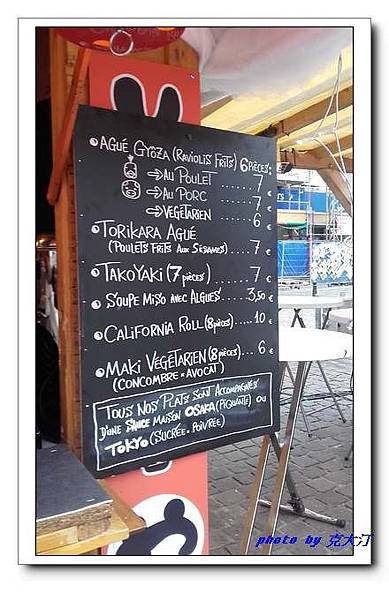 AGUÉ GYOZA (RAVIOLIS FRITS) 6 PIÈCES:
⇒ AU POULET ...... 7 €
⇒ AU PORC ...... 7 €
⇒ VÉGÉTARIEN 6 €
TORIKARA AGUÉ
(POULETS FRITS AUX SÉSAMES) .... 7 €
TAKOYAKI (7 pièces) ...... 7 €
SOUPE MISO AVEC ALGUES ..... 3,50 €
CALIFORNIA ROLL (8 pièces) ..... 10 €
MAKI VEGÉTARIEN (8 pièces) ... 6 €
(CONCOMBRE - AVOCAT)
TOUS NOS PLATS SONT ACCOMPAGNÉS
D'UNE SAUCE MAISON OSAKA (PIQUANTE) OU
TOKYO (SUCRÉE - POIVRÉE)
photo by 克大汀